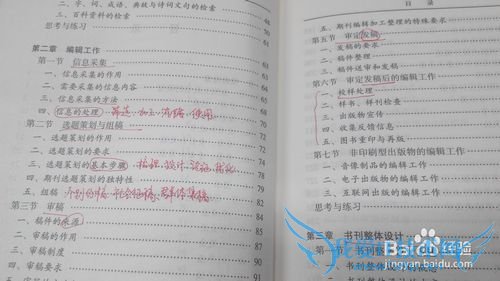 二、字、词、成语、典故与诗词文句的检索 60
三、百科资料的检索 63
思考与练习 64
第二章 编辑工作 68
第一节 信息采集 68
一、信息采集的作用 68
二、需要采集的信息内容
三、信息采集的方法
四、信息的处理 筛选、加工、存储、使用
第二节 选题策划与组稿
一、选题策划的作用 72
二、选题策划的要求 74
三、选题策划的基本步骤 梳理、设计、论证、优化
四、期刊选题策划的独特性 77
五、组稿 个别约稿、社会征稿、群体集稿 79
第三节 审稿 82
一、稿件的来源 84
二、审稿的作用 85
三、审稿制度 87
四、审稿要求
91
目录
五、期刊编辑加工整理的特殊要求
第五节 审定发稿
一、发稿的要求
二、稿件整理
三、稿件送审和发稿
第六节 审定发稿后的编辑工作
一、校样处理
二、样书、样刊检查
三、出版物宣传
四、收集反馈信息
五、图书重印与再版
第七节 非印刷型出版物的编辑工作
一、音像制品的编辑工作
二、电子出版物的编辑工作
三、互联网出版的编辑工作
思考与练习
第三章 书刊整体设计
第一节 书刊整体设计
一、书刊整体设计
Baidu经验
jingyan.baidu.com